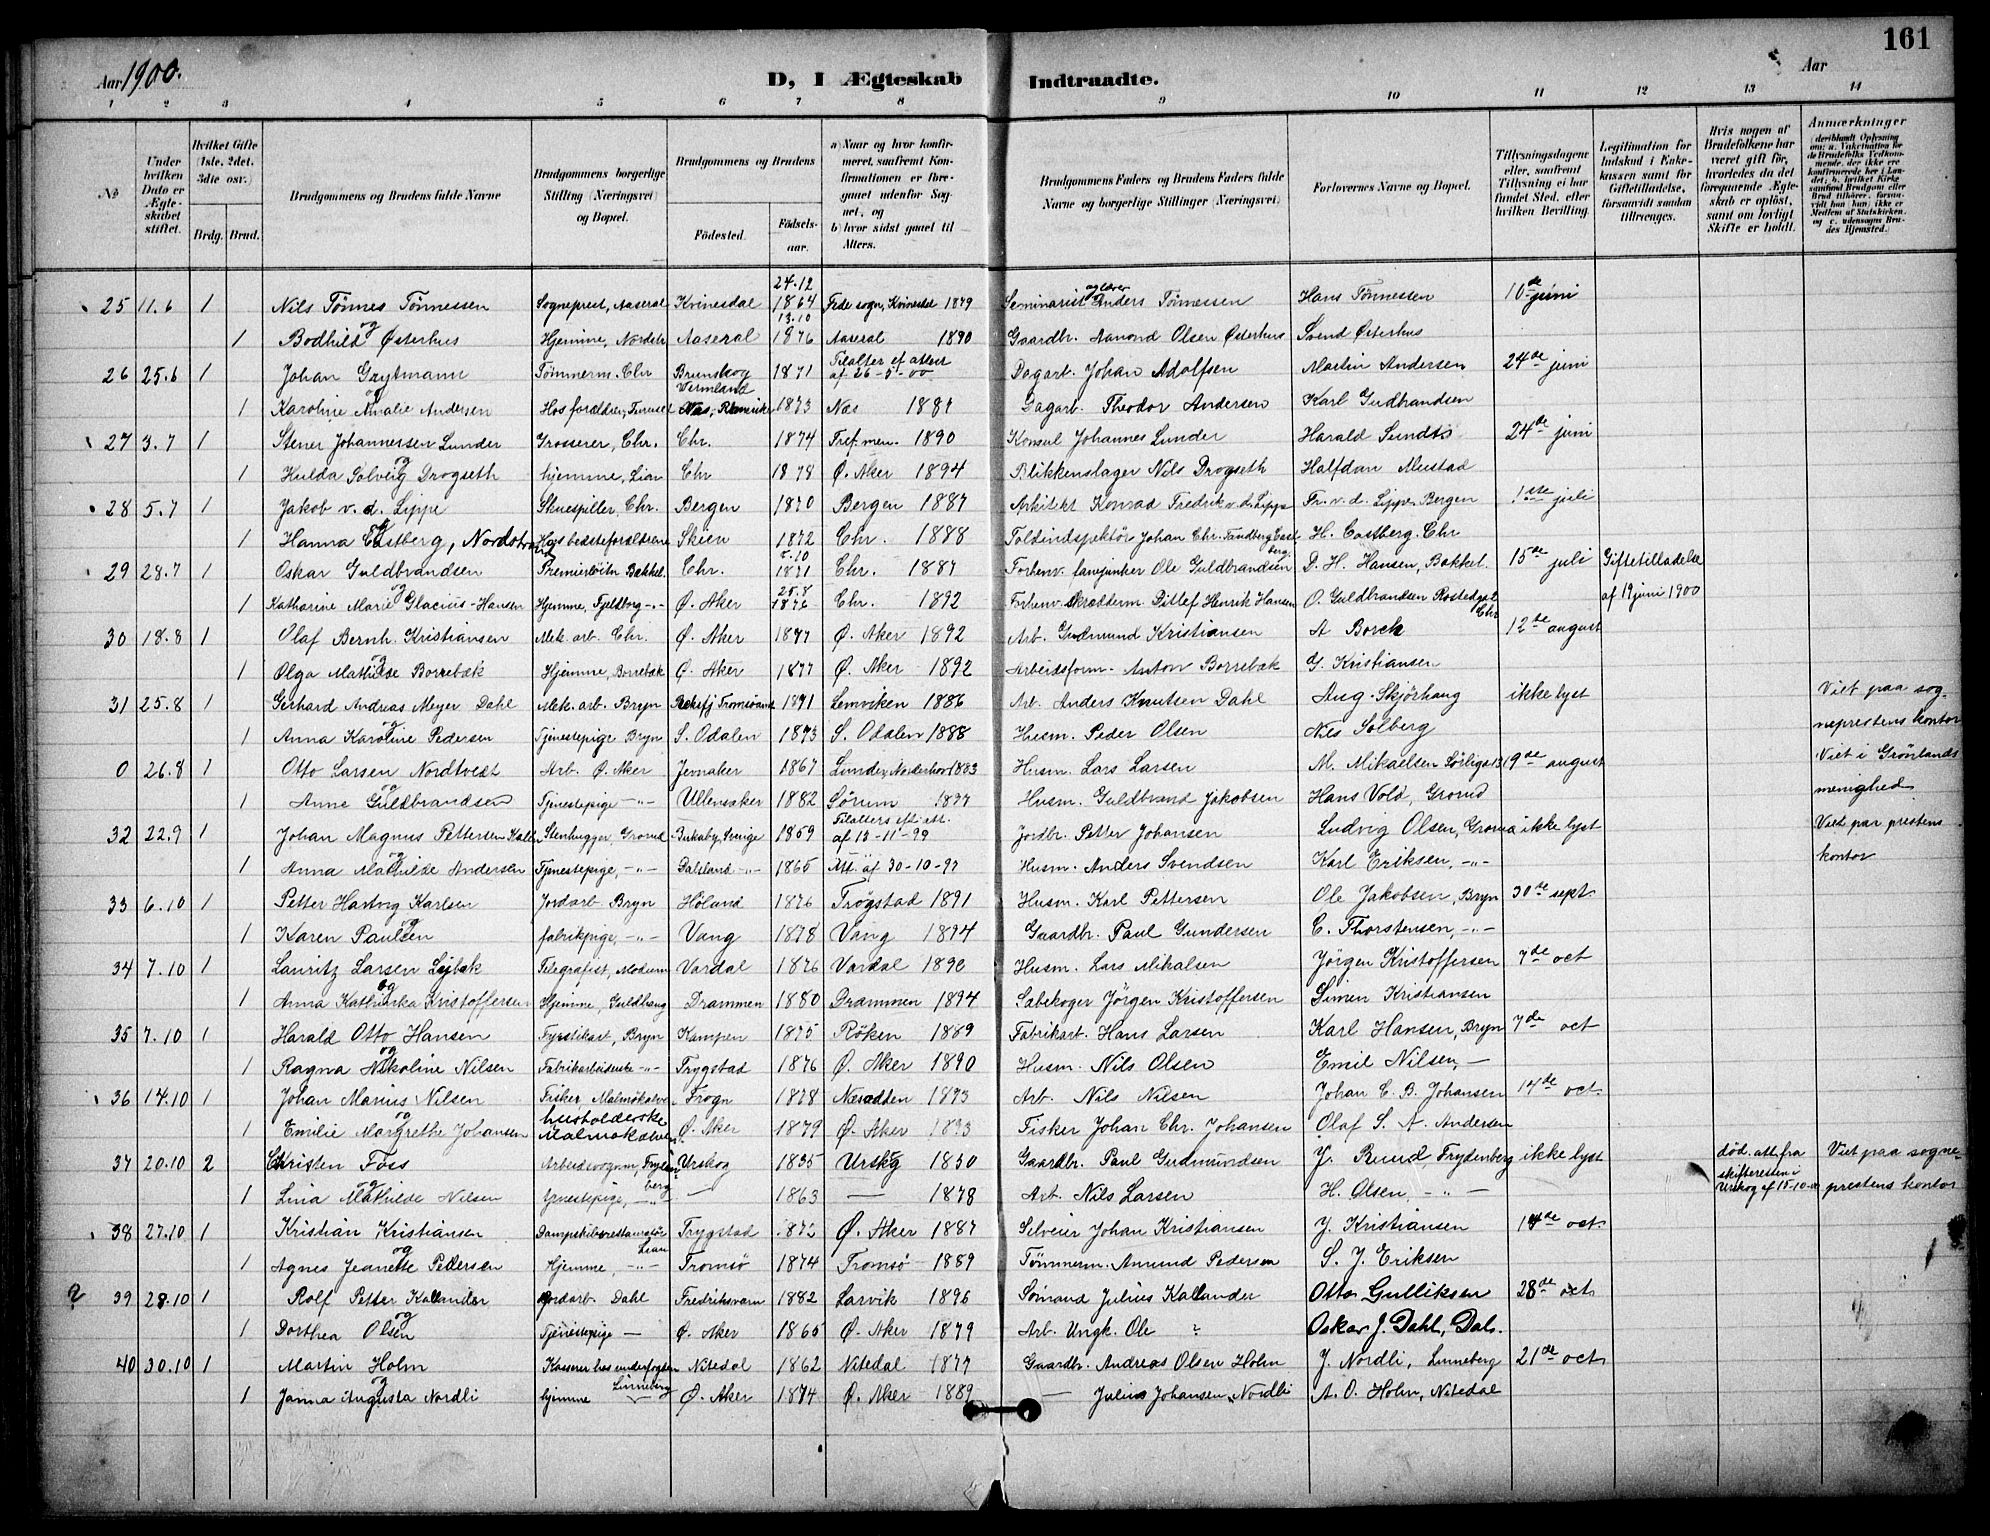 161
Aar 1900.
D, I Ægteskab Indtraadte.
Aar
1 2 3 4 5 6 7 8 9 10 11 12 13 14
No
Under hvilken Dato er Ægteskabet stiftet.
Hvilket Gifte (1ste. 2det. 3die osv.)
Brdg. Brud.
Brudgommens og Brudens fulde Navne
Brudgommens borgerlige Stilling (Næringsvei) og Bopæl.
Brudgommens og Brudens
Födested. Födselsaar.
a) Naar og hvor konfirmeret, saafremt Konfirmationen er foregaaet udenfor Sognet, og b) hvor sidst gaaet til Alters.
Brudgommens Faders og Brudens Faders fulde Navne og borgerlige Stillinger (Næringsvei)
Forlovernes Navne og Bopæl.
Tillysningsdagene eller, saafremt Tillysning ei har fundet Sted, efter hvilken Bevilling.
Legitimation for Indskud i Enkekassen samt for Giftetilladelse, forsaavidt saadan tiltrænges.
Hvis nogen af Brudefolkene har været gift før, hvorledes da det foregaaende Ægteskab er opløst, samt om lovligt Skifte er holdt.
Anmærkninger (deriblandt Oplysning om: a. Vakcination for de Brudefolks Vedkommende, der ikke ere konfirmerede her i Landet; b. hvilket Kirkesamfund Brudgom eller Brud tilhører, forsaavidt han (hun) ikke er Medlem af Statskirken, og c. udensogns Brudes Hjemsted.)
25 11.6 1 Nils Tönnes Tönnessen Sogneprest, Aaseral Kvinesdal 24.12 1864 Fede sogn, Kvinesdal 1879 Seminarist og lærer Anders Tönnessen Hans Tönnessen 10de juni
og 1 Bodhild Østerhus Hjemme, Nordstr Aaseral 13.10 1876 Aaseral 1890 Gaardbr. Aanond Olsen Østerhus Svend Østerhus
26 25.6 1 Johan Gaytmann Tömmerm. Chr Brunskog Vermland 1871 Tilalter ef attest af 26-5-00 Dagarb. Johan Adolfsen Martin Andersen 24de juni
og 1 Karoline Amalie Andersen Hos forældre, Furuset Næs, Romerike 1873 Næs 1887 Dagarb. Theodor Andersen Karl Gudbrandsen
27 3.7 1 Stener Johannessen Lunder Grosserer, Chr. Chr. 1874 Tref. men. 1890 Konsul Johannes Lunder Harald Sundts 24de juni
og 1 Hulda Solveig Drogseth hjemme, Lian Chr 1878 Ø. Aker 1894 Blikkenslager Nils Drogseth Halfdan Mustad
28 5.7 1 Jakob v. d. Lippe Skuespiller, Chr. Bergen 1870 Bergen 1887 Arkitekt Konrad Fredrik v. d. Lippe Fr. v. d. Lippe Bergen 1ste juli
og 1 Hanna Castberg, Nordstrand Hos bedsteforældrene Skien 1872 Chr. 1888 Toldindspektör Johan Chr. Tandberg Castberg. H. Castberg. Chr
29 28.7 1 Oskar Guldbrandsen Premierløitn. Bækkel. Chr. 5.10 1871 Chr. 1887 Forhenv. fanejunker Ole Guldbrandsen D. H. Hansen, Bækkel. 15de juli Giftetilladelse
og 1 Katharine Marie Glacius-Hansen Hjemme, Fjeldborg -"- Ø. Aker 25.8 1876 Chr. 1892 Forhenv. Skrædderm. Ditlef Henrik Hansen O. Guldbrandsen Chr af 19 juni 1900
30 18.8 1 Olaf Bernh. Kristiansen Mek. arb. Chr. Ø. Aker 1877 Ø. Aker 1892 Arb. Gudmund Kristiansen A Borch 12de august
og 1 Olga Mathilde Borrebæk Hjemme, Borrebæk Ø. Aker 1877 Ø. Aker 1892 Arbeidsform. Anton Borrebæk G. Kristiansen
31 25.8 1 Gerhard Andreas Meyer Dahl Mek. arb. Bryn 1871 Lenviken 1886 Arb. Anders Knutsen Dahl Aug. Skjörhang ikke lyst Viet paa sog-
og 1 Anna Karoline Pedersen Tjenestepige Bryn S. Odalen 1873 S. Odalen 1888 Husm. Peder Olsen Nils Solberg neprestens kontor
0 26.8 1 Otto Larsen Nordtvedt Arb. Ø. Aker Jevnaker 1867 Lunder, Norderhov 1883 Husm. Lars Larsen M. Mikaelsen 19de august Viet i Grönlands
og 1 Anne Guldbrandsen Tjenestepige -"- Ullensaker 1882 Sørum 1897 Husm. Guldbrand Jakobsen Hans Vold, Grorud menighed
32 22.9 1 Johan Magnus Pettersen Stenhugger, Grorud Sverige 1859 Tilalters eft. att. af 13-11-99 Jordbr. Petter Johansen Ludvig Olsen, Grorud ikke lyst Viet paa prestens
og 1 Anna Mathilde Andersen Tjenestepige, -"- Dalsland -"- 1865 Att. af 30-10-97 Husm. Anders Svendsen Karl Eriksen, -"- kontor
33 6.10 1 Petter Hartvig Karlsen Jordarb. Bryn Höland 1876 Trøgstad 1891 Husm. Karl Pettersen Ole Jakobsen, Bryn 30te sept.
og 1 Karen Paulsen fabrikpige, -"- Vang 1878 Vang 1894 Gaardbr. Paul Gundersen C. Thorstensen, -"-
34 7.10 1 Lauritz Larsen Lejbæk Telegrafist, Modum Vardal 1876 Vardal 1890 Husm. Lars Mikalsen Jörgen Kristoffersen 7de oct
og 1 Anna Kathinka Kristoffersen Hjemme, Guldhaug Drammen 1880 Drammen 1894 Sæbekoger Jörgen Kristoffersen Simen Kristiansen
35 7.10 1 Harald Otto Hansen Fyrstikarb. Bryn Kampen 1875 Röken 1889 Fabrikarb. Hans Larsen Karl Hansen, Bryn 7de oct
og 1 Ragna Nikoline Nilsen Fabrikarbeiderske -"- Trygstad 1876 Ø. Aker 1890 Husm. Nils Olsen Emil Nilsen, -
36 14.10 1 Johan Marius Nilsen Fisker, Malmökalve. Frogn 1878 Næsodden 1893 Arb. Nils Nilsen Johan C. B. Johansen 14de oct.
og 1 Emilie Margrethe Johansen husholderske Malmøkalven Ø. Aker 1879 Ø. Aker 1893 Fisker Johan Chr. Johansen Olaf S. A. Andersen
37 20.10 2 Christen Foss Arbeidsvognm, Frydenberg Urskog 1835 Urskog 1850 Gaardbr. Paul Gudmundsen J. Ruud, Frydenberg ikke lyst død. att. fra skifteretten i Urskog af 15-10-00 Viet paa sogne-
og 1 Lina Mathilde Nilsen Tjenestepige, -"- — 1863 — 1878 Arb. Nils Larsen H. Olsen, -"- prestens kontor
38 27.10 1 Kristian Kristiansen Dampskibsrestauratör Lian Trygstad 1872 Ø. Aker 1887 Selveier Johan Kristiansen J. Kristiansen 14de oct.
og 1 Agnes Jeanette Pedersen Hjemme, -"- Tromsö 1874 Tromsö 1889 Tömmerm. Amund Pedersen S. J. Eriksen
? 39 28.10 1 Rolf Petter Kallander Jordarb. Dahl Fredriksværn 1882 Larvik 1896 Sömand Julius Kallander Otto Gulliksen 28de oct
og 1 Dorthea Olsen Tjenestepige — Ø. Aker 1865 Ø. Aker 1879 Arb. Ungk. Ole ? Oskar J. Dahl, Dal.
40 30.10 1 Martin Holm Kasserer hos underfogden Nitedal 1862 Nitedal 1877 Gaardbr. Andreas Olsen Holm J. Nordli, Linneberg 21de oct
og 1 Janna Augusta Nordli hjemme Linneberg Ø. Aker 1874 Ø. Aker 1889 — Julius Johansen Nordli A. O. Holm, Nitedal